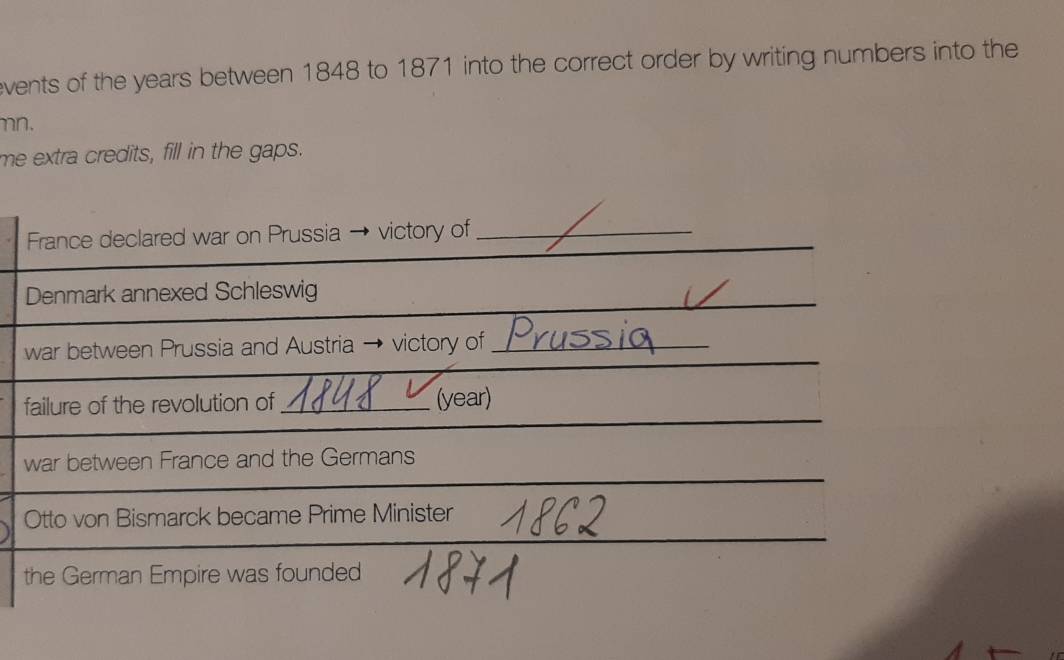 events of the years between 1848 to 1871 into the correct order by writing numbers into the
mn.
me extra credits, fill in the gaps.
France declared war on Prussia → victory of
Denmark annexed Schleswig
war between Prussia and Austria → victory of Prussia
failure of the revolution of 1848 (year)
war between France and the Germans
Otto von Bismarck became Prime Minister 1862
the German Empire was founded 1871